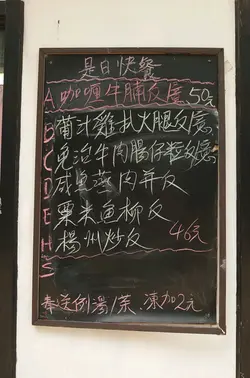 是日快餐
A 咖喱牛腩反 50元
B 葡汁雞扒火腿反
C 免治牛肉腸仔粒反
D 咸魚蒸肉并反
E 粟米魚柳反
H 楊州炒反 46元
S
奉送例湯/茶.凍加2元